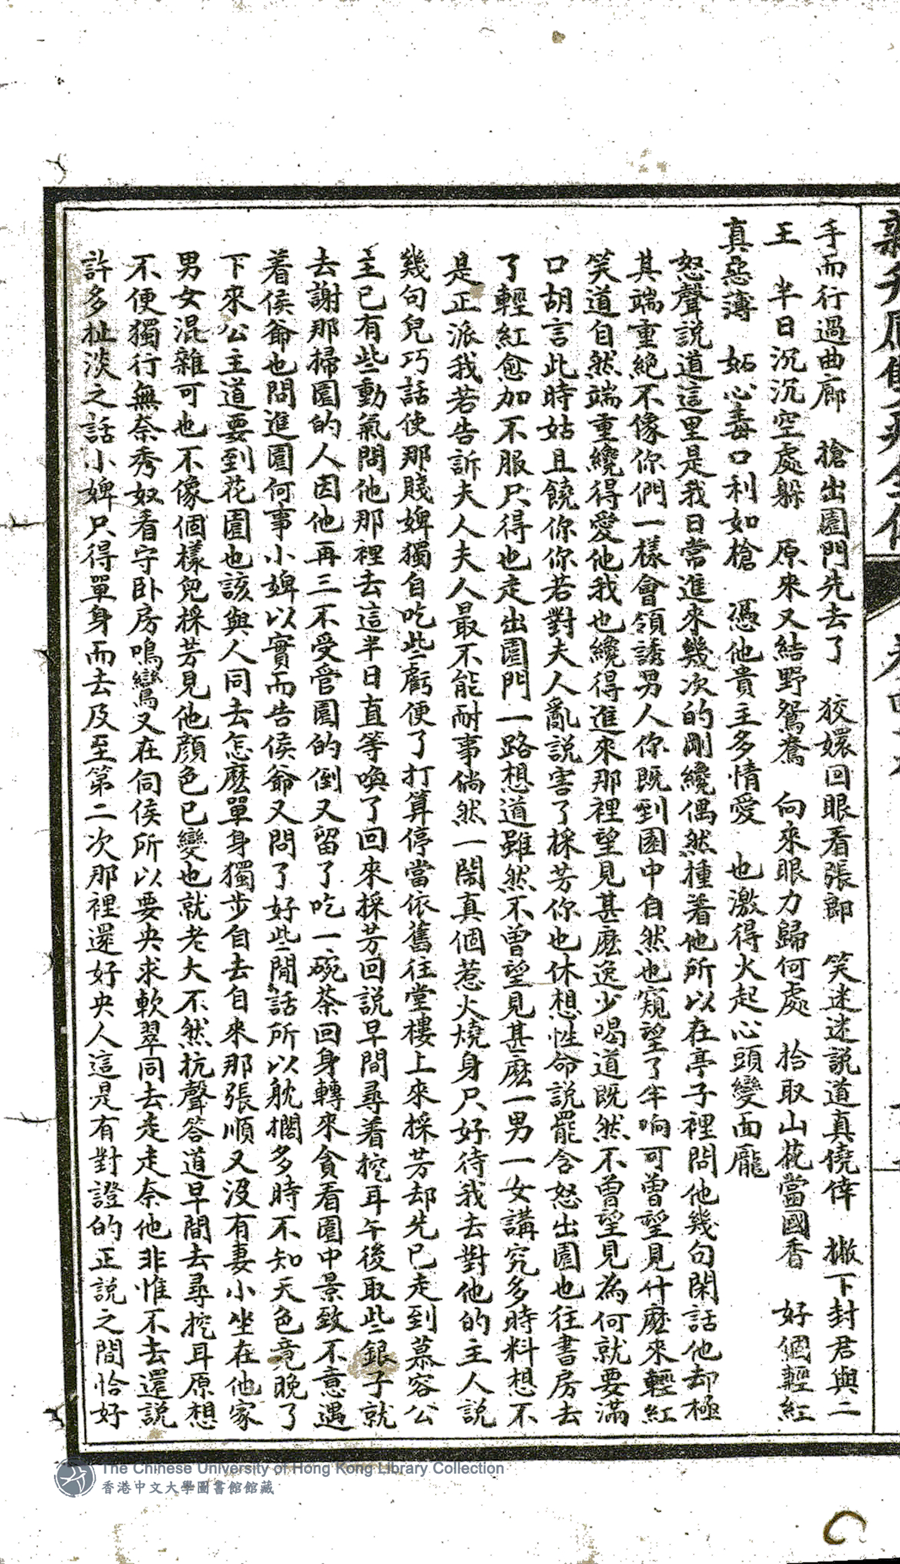 手而行過曲廊　搶出園門先去了　狡嬛回眼看張郎　笑迷迷説道真僥倖　撇下封君與二
王　半日沉沉空處躲　原來又結野鴛鴦　向來眼力歸何處　拾取山花當國香　好個輕紅
真惡薄　妬心毒口利如槍　憑他貴主多情愛　也激得火起心頭變面龐
怒聲説道這里是我日常進來幾次的剛纔偶然撞着他所以在亭子裡問他幾句閑話他却極
其端重絶不像你們一樣會領誘男人你既到園中自然也窺望了半响可曾望見什麽來輕紅
笑道自然端重纔得愛他我也纔得進來那裡望見甚麽逸少喝道既然不曾望見為何就要滿
口胡言此時姑且饒你你若對夫人亂説害了採芳你也休想性命説罷含怒出園也往書房去
了輕紅愈加不服只得也走出園門一路想道雖然不曾望見甚麽一男一女講究多時料想不
是正派我若告訴夫人夫人最不能耐事倘然一閙真個惹火燒身只好待我去對他的主人説
幾句兒巧話使那賤婢獨自吃些虧便了打算停當依舊往堂樓上來採芳却先已走到慕容公
主已有些動氣問他那裡去這半日直等喚了回來採芳回説早間尋着挖耳午後取些銀子就
去謝那掃園的人因他再三不受管園的倒又留了吃一碗茶回身轉來貪看園中景致不意遇
着侯爺也問進園何事小婢以實而告侯爺又問了好些閒話所以躭擱多時不知天色竟晚了
下來公主道要到花園也該與人同去怎麽單身獨步自去自來那張順又沒有妻小坐在他家
男女混雜可也不像個樣兒採芳見他顔色已變也就老大不然抗聲答道早間去尋挖耳原想
不便獨行無奈秀奴看守卧房鳴鸞又在伺侯所以要央求軟翠同去走走奈他非惟不去還説
許多扯淡之話小婢只得單身而去及至第二次那裡還好央人這是有對證的正説之間恰好
The Chinese University of Hong Kong Library Collection
香港中文大學圖書館館藏